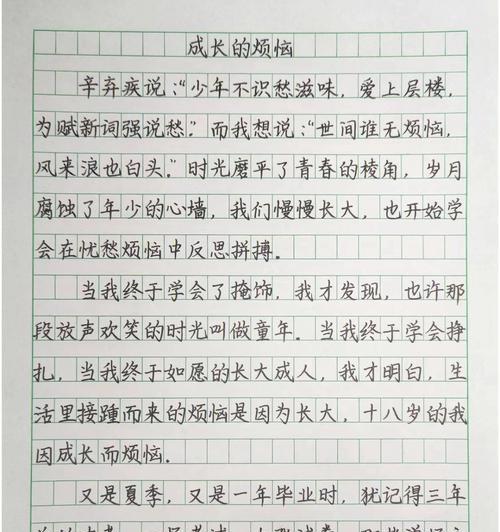 成长的烦恼
辛弃疾说：“少年不识愁滋味，爱上层楼，
为赋新词强说愁。”而我想说：“世间谁无烦恼，
风来浪也白头。”时光磨平了青春的棱角，岁月
腐蚀了年少的心墙，我们慢慢长大，也开始学
会在忧愁烦恼中反思拼搏。
当我终于学会了掩饰，我才发现，也许那
段放声欢笑的时光叫做童年。当我终于学会挣
扎，当我终于如愿的长大成人，我才明白，生
活里接踵而来的烦恼是因为长大，十八岁的我
因成长而烦恼。
又是夏季，又是一年毕业时，犹记得三年